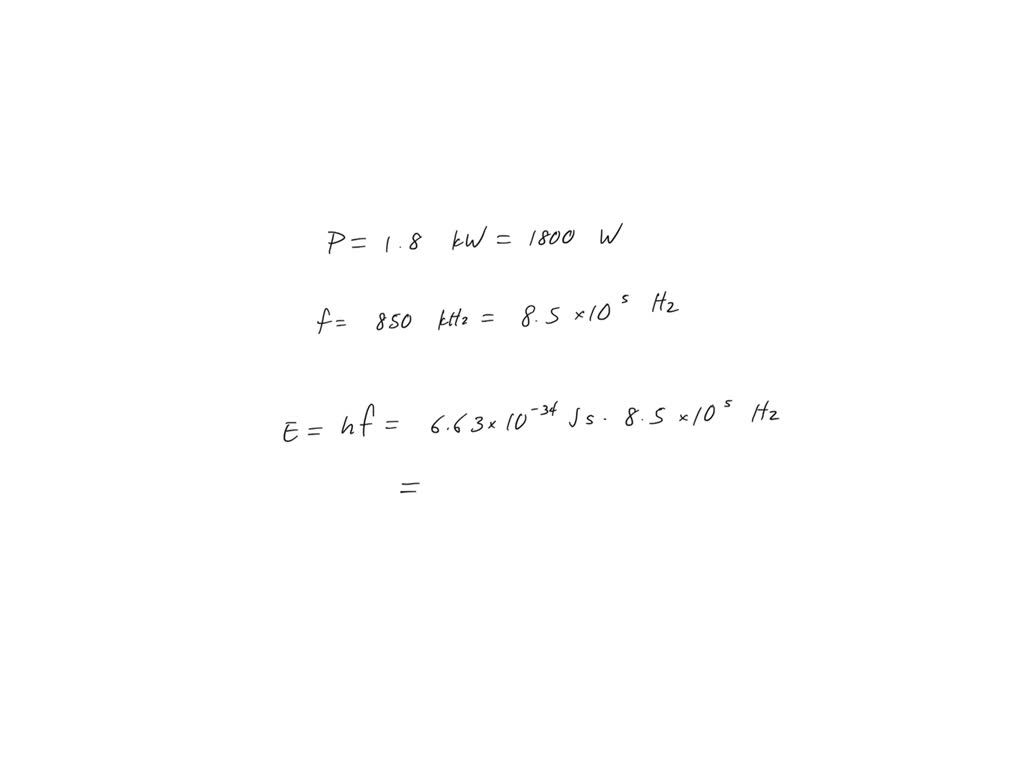 P = 1.8 kW = 1800 W
f = 850 kHz = 8.5 ×10⁵ Hz
E = hf = 6.63 × 10⁻³⁴ Js · 8.5 ×10⁵ Hz
=